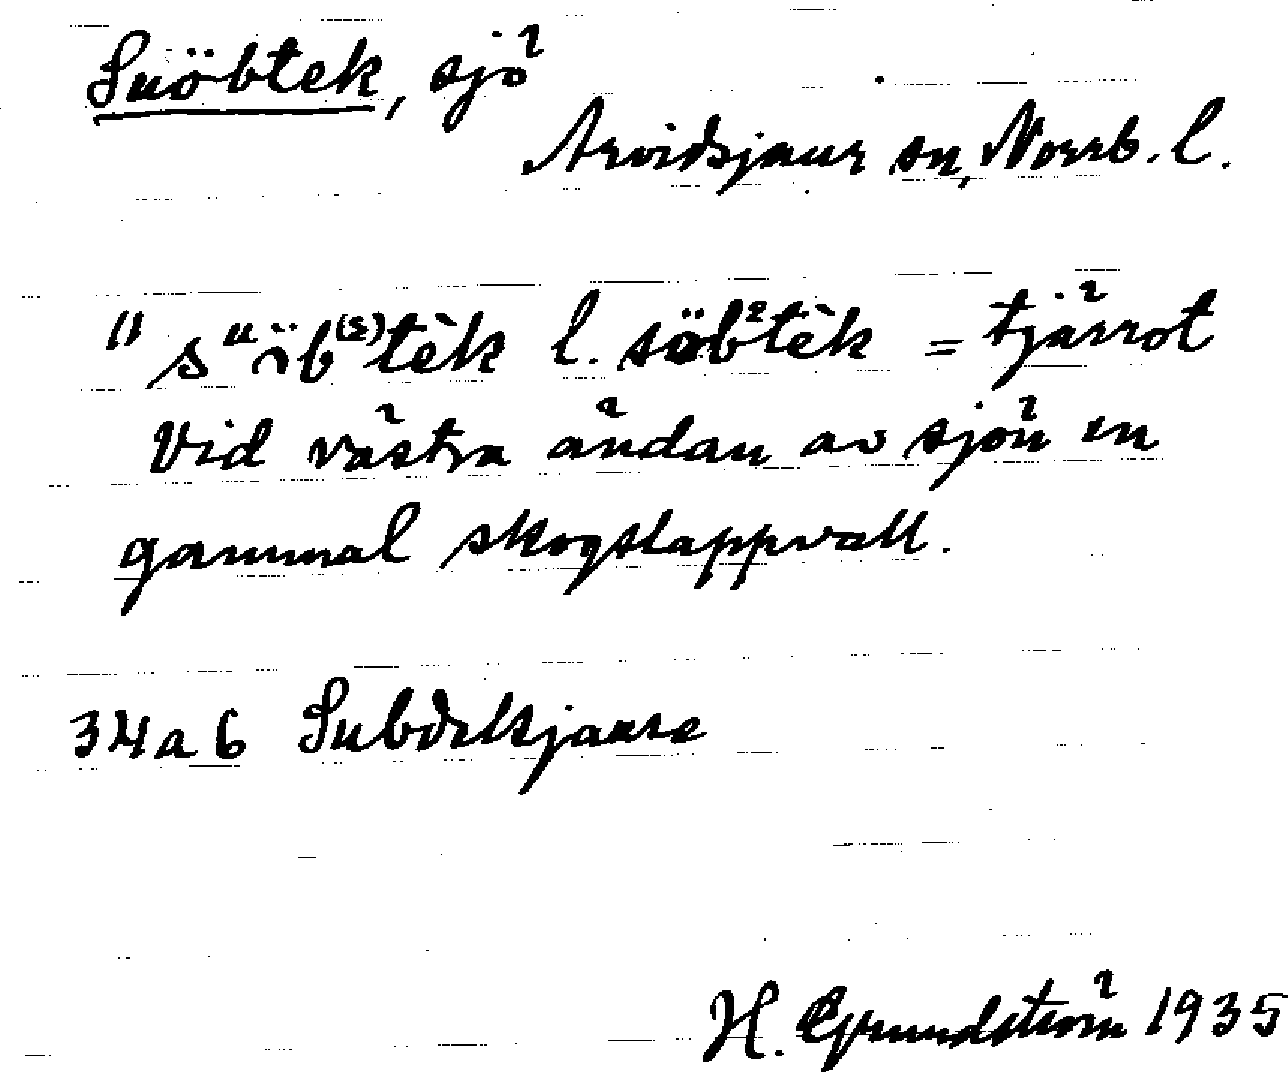 Suöbtek, sjö
Arvidsjaur sn, Norrb. l.
() sᵘöb⁽²⁾tèk l. söb²tèk = tjärrot
Vid västra ändan av sjön en
gammal skogslappvall.
34a6 Subdekjaure
H. Grundström 1935